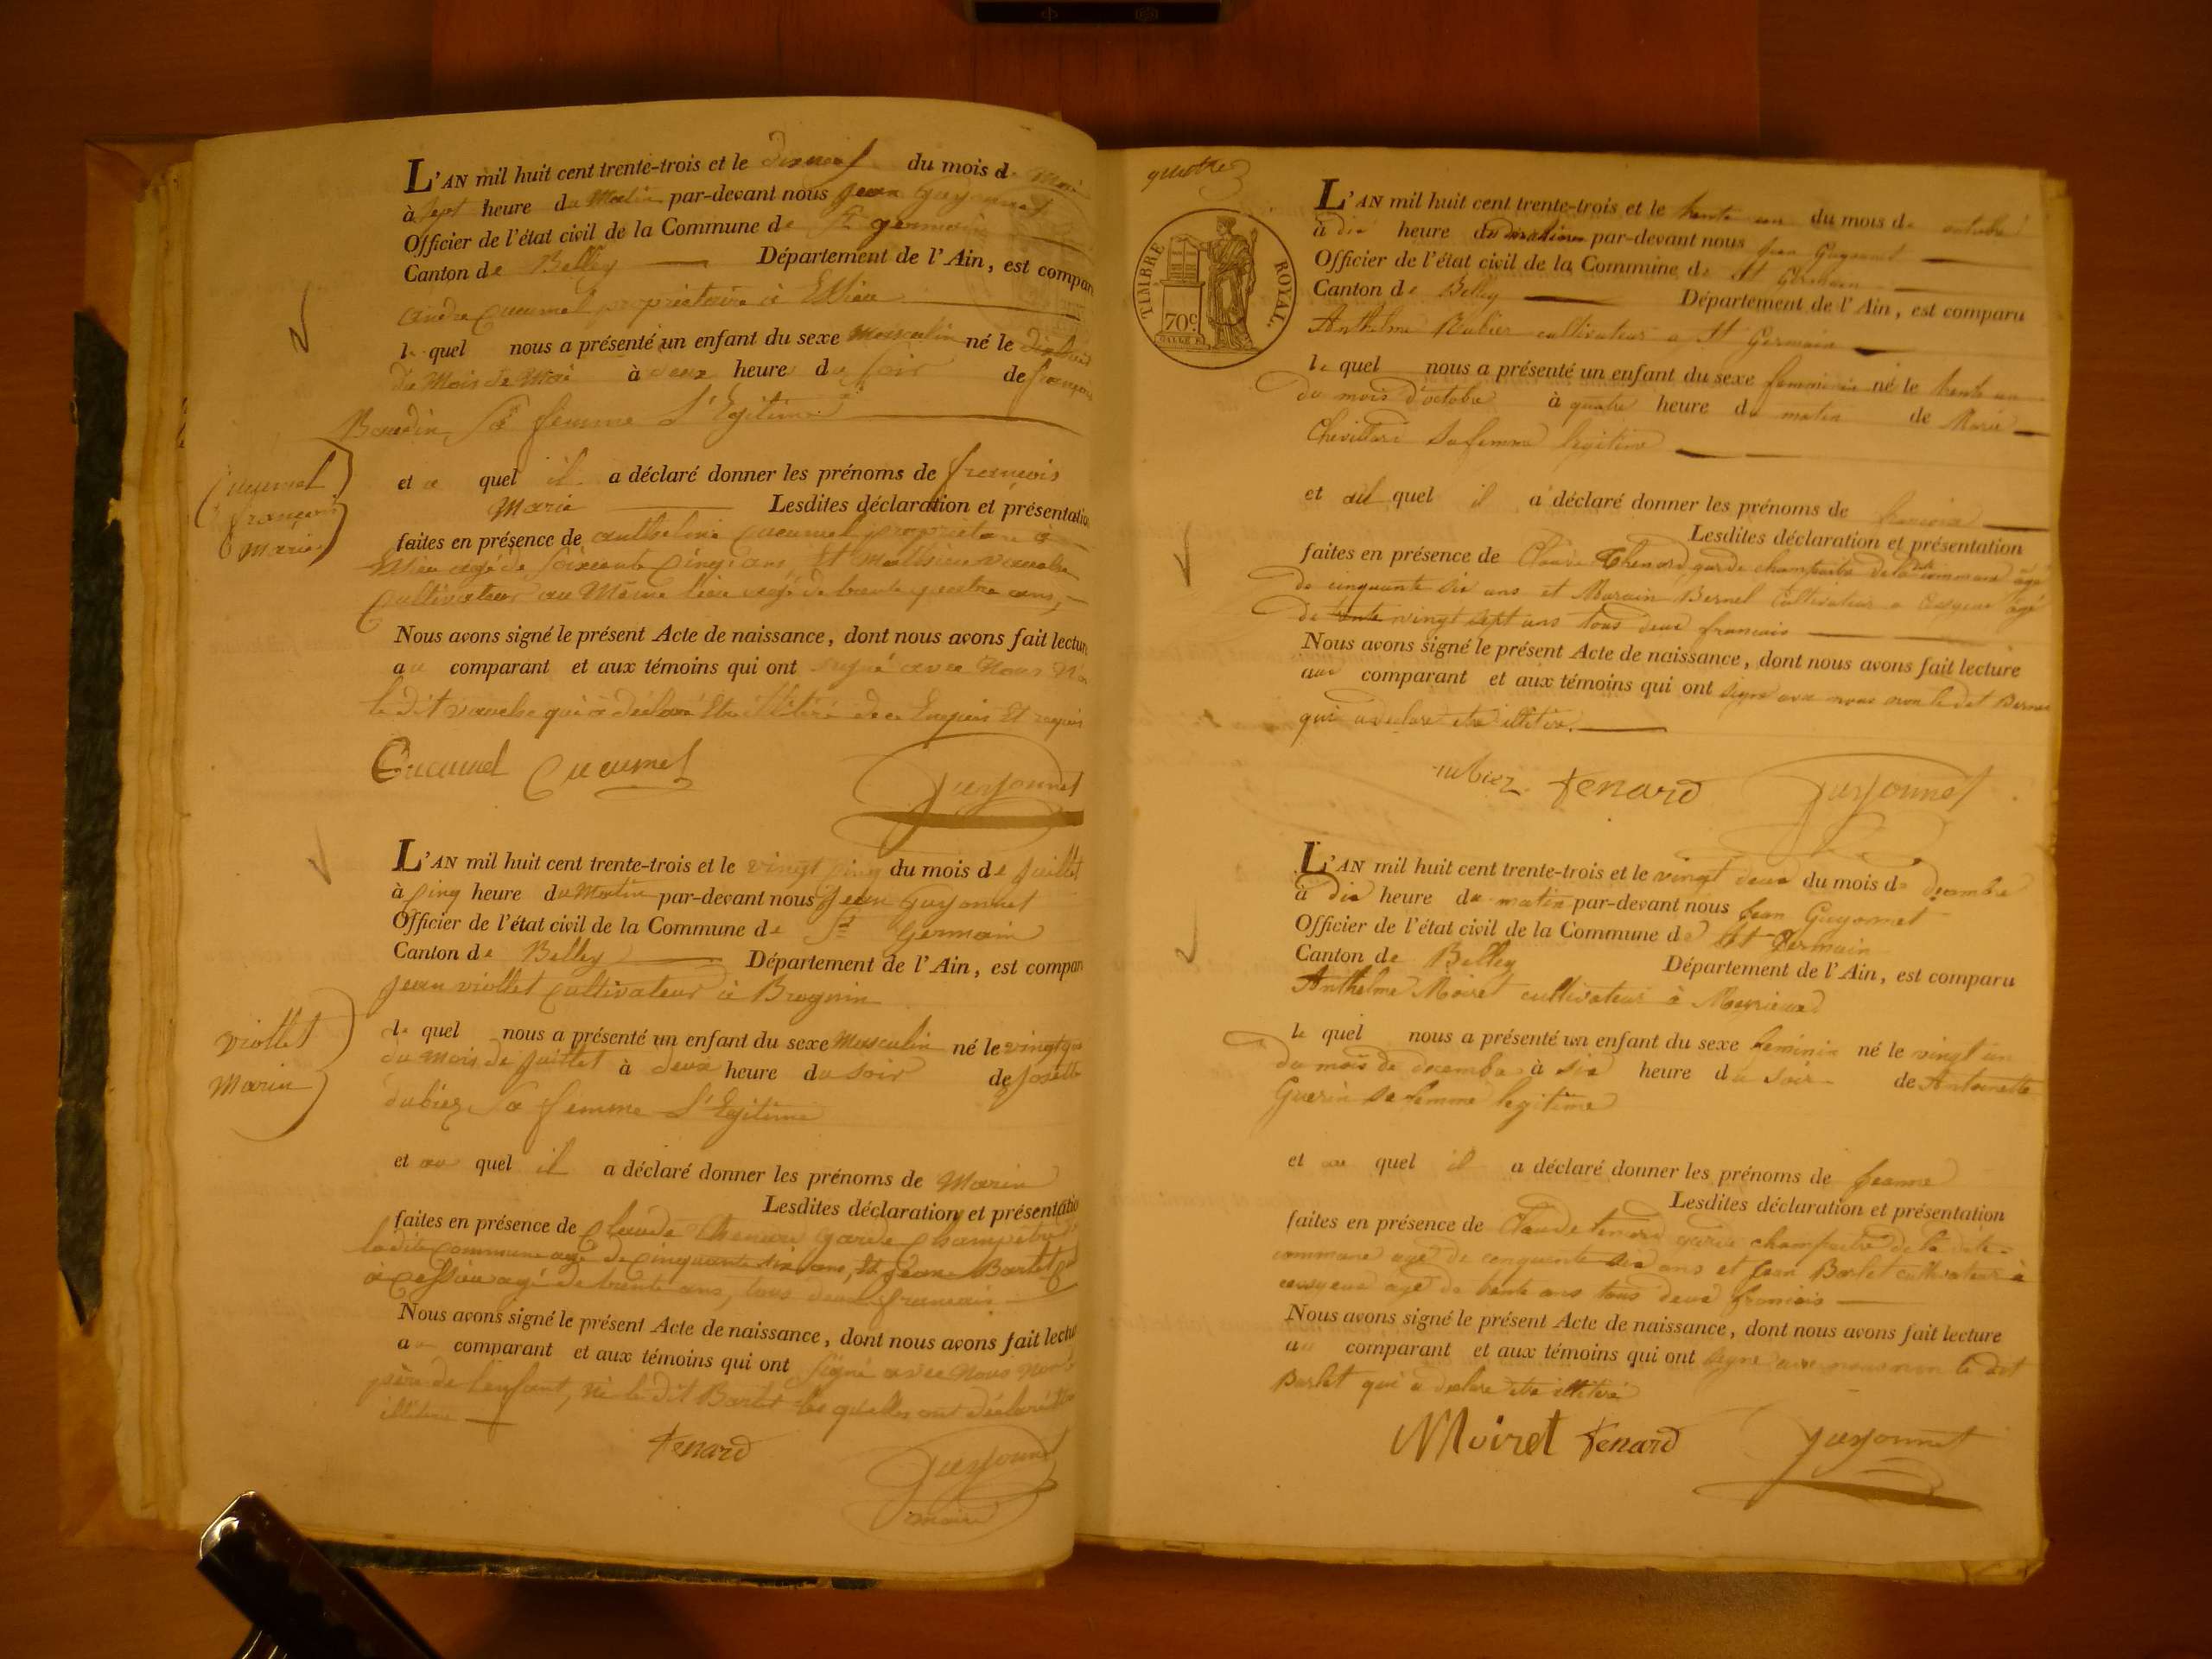 L'AN mil huit cent trente-trois et le dixneuf du mois de Mai
à sept heure du Matin par-devant nous jean Guyonnet
Officier de l'état civil de la Commune de St germain
Canton de Belley Département de l'Ain, est compar
andre cucumel propriétaire à
le quel nous a présenté un enfant du sexe Masculin né le dixhuit
du Mois de Mai à deux heure du soir de françoise
Baudin sa femme L'Egitime
Cucumel
françois
Marie
et a quel il a déclaré donner les prénoms de françois
Marie Lesdites déclaration et présentatio
faites en présence de cucumel propriétaire à
agé de soixante cinq ans, Et
cultivateur au Même lieu agé de trente quatre ans,
Nous avons signé le présent Acte de naissance, dont nous avons fait lectur
au comparant et aux témoins qui ont signé avec Nous
le dit qui a déclaré Etre illitéré de ce Enquis Et requis
Cucumel Cucumel Guyonnet
L'AN mil huit cent trente-trois et le vingt cinq du mois de juillet
à cinq heure du Matin par-devant nous jean Guyonnet
Officier de l'état civil de la Commune de St Germain
Canton de Belley Département de l'Ain, est compar
jean viollet cultivateur à Brognin
viollet
Marin
le quel nous a présenté un enfant du sexe Masculin né le
du mois de juillet à deux heure du soir de josette
dubiez sa femme L'Egitime
et au quel il a déclaré donner les prénoms de Marin
Lesdites déclaration et présentatio
faites en présence de claude thenard garde champêtre
ladite commune agé de cinquante six ans, Et jean Barlet
à agé de trente ans, tous deux francais
Nous avons signé le présent Acte de naissance, dont nous avons fait lectur
au comparant et aux témoins qui ont signé avec Nous Non
père de l'enfant, ni le dit Barlet les quelles ont déclaré
illitéré
tenard Guyonnet
maire
quatre
TIMBRE ROYAL.
70c
L'AN mil huit cent trente-trois et le trente un du mois de octobre
à dix heure du matin par-devant nous jean Guyonnet
Officier de l'état civil de la Commune de St Germain
Canton de Belley Département de l'Ain, est comparu
Anthelme Rubier cultivateur a St Germain
le quel nous a présenté un enfant du sexe femininin né le trente un
du mois d'octobre à quatre heure du matin de Marie
Chevillard sa femme legitime
et au quel il a déclaré donner les prénoms de
Lesdites déclaration et présentation
faites en présence de Claude thenard garde champetre de la dite commune agé
de cinquante six ans et Bernel cultivateur a agé
de vingt sept ans tous deux francais
Nous avons signé le présent Acte de naissance, dont nous avons fait lecture
au comparant et aux témoins qui ont signé avec nous non le dit Bernel
qui a declaré etre illitéré.
rubiez tenard Guyonnet
L'AN mil huit cent trente-trois et le vingt deux du mois de decembre
à dix heure du matin par-devant nous jean Guyonnet
Officier de l'état civil de la Commune de St Germain
Canton de Belley Département de l'Ain, est comparu
Anthelme Moiret cultivateur à
le quel nous a présenté un enfant du sexe feminin né le vingt un
du mois de decembre à six heure du soir de Antoinette
Guerin sa femme legitime
et au quel il a déclaré donner les prénoms de jeanne
Lesdites déclaration et présentation
faites en présence de Claude tenard garde champaitre de la dite
commune agé de cinquante six ans et jean Barlet cultivateur à
agé de trente ans tous deux francais
Nous avons signé le présent Acte de naissance, dont nous avons fait lecture
au comparant et aux témoins qui ont signé avec nous non le dit
Barlet qui a declaré etre illitéré
Moiret tenard Guyonnet